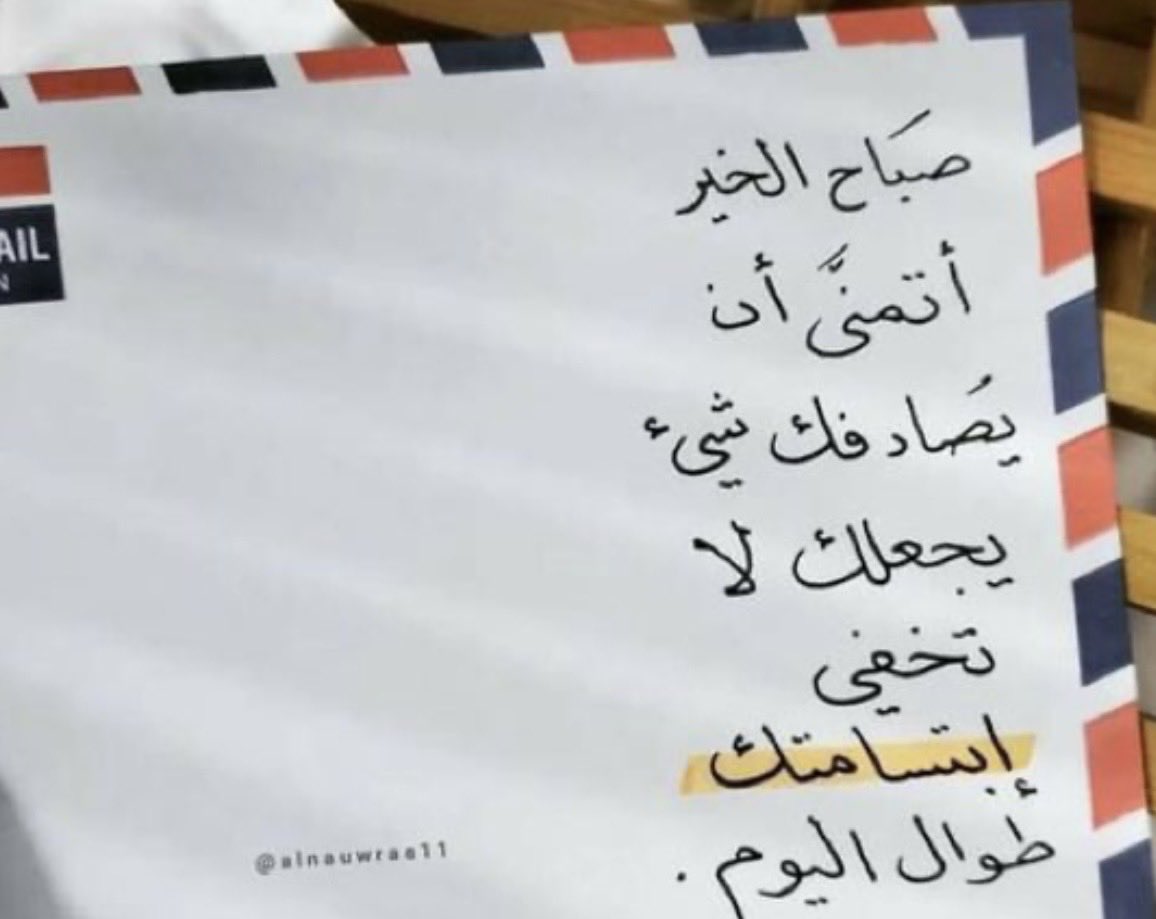 صبَاح الخير
أتمنَّى أن
يصُادفك شيء
يجعلك لا
تخفي
إبتسامتك
طوال اليوم .
@alnauwrae11
AIL
N